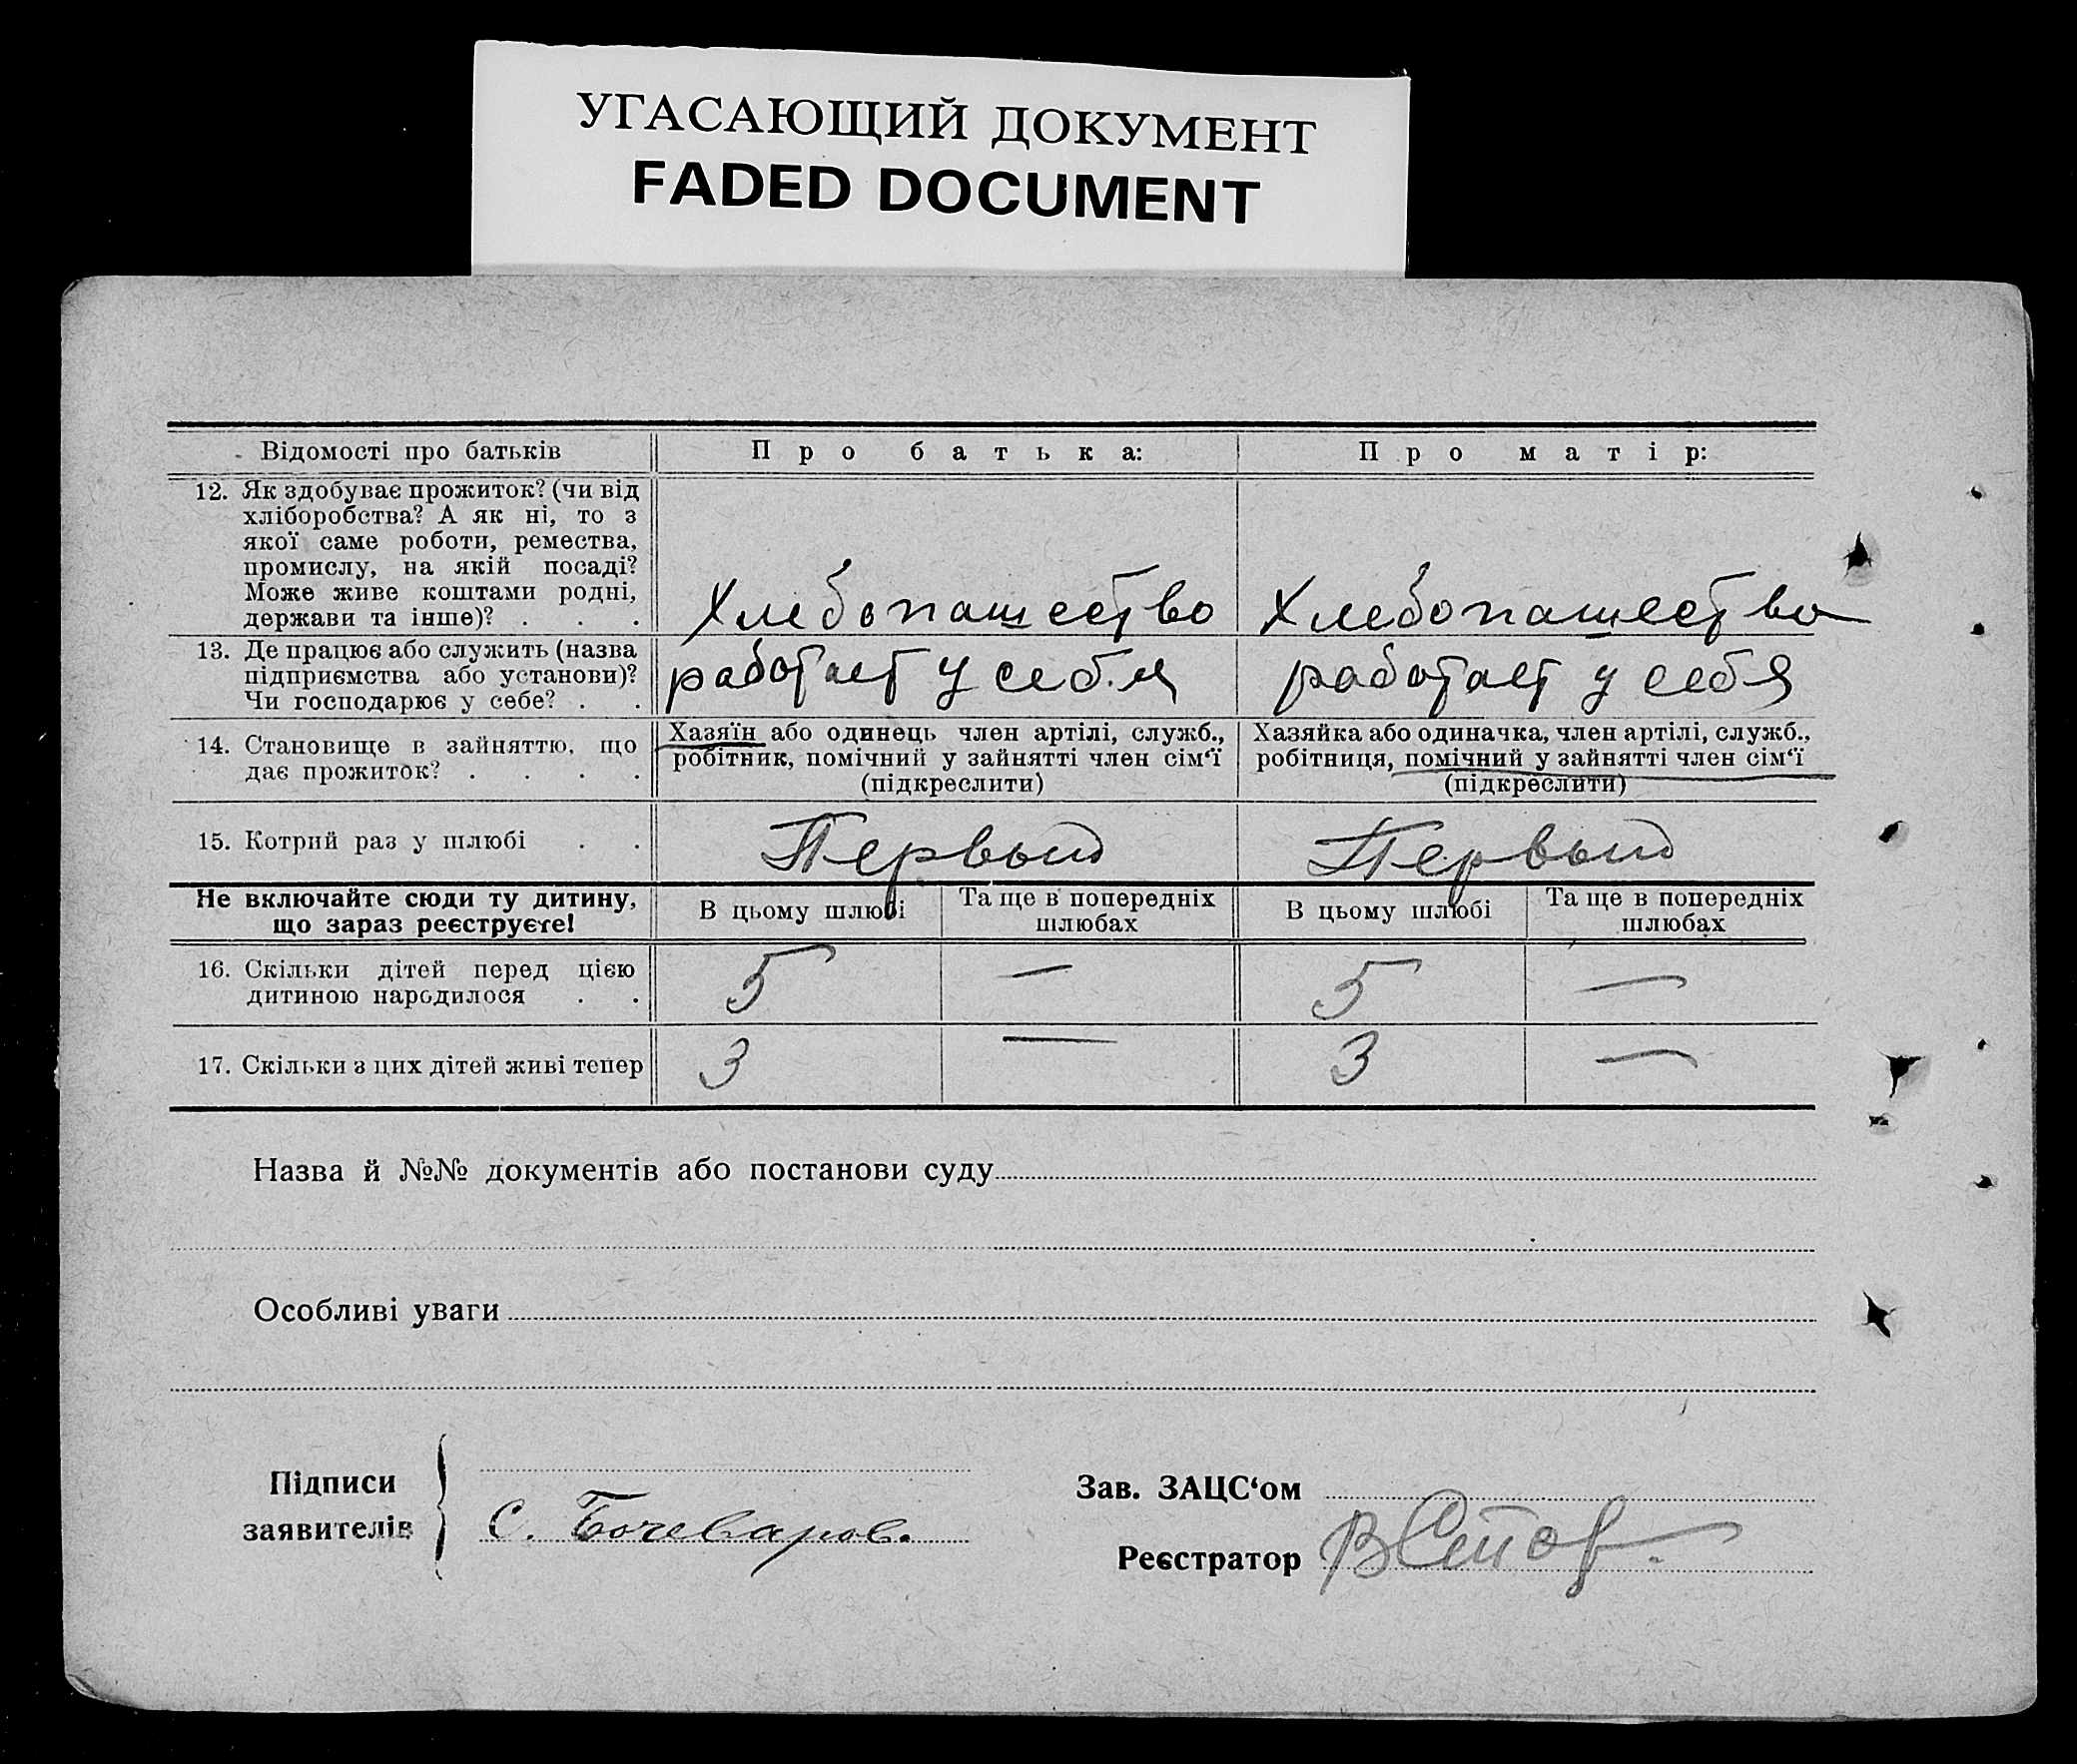 УГАСАЮЩИЙ ДОКУМЕНТ
FADED DOCUMENT
Відомості про батьків
Про батька:
Про матір:
12. Як здобуває прожиток? (чи від
хліборобства? А як ні, то з
якої саме роботи, ремества,
промислу, на якій посаді?
Може живе коштами родні,
держави та інше)? . . .
Хлебопашество
Хлебопашество
13. Де працює або служить (назва
підприємства або установи)?
Чи господарює у себе? . .
работает у себя
работает у себя
14. Становище в зайняттю, що
дає прожиток? . . . .
Хазяїн або одинець член артілі, служб.,
робітник, помічний у зайнятті член сім‘ї
(підкреслити)
Хазяйка або одиначка, член артілі, служб.,
робітниця, помічний у зайнятті член сім‘ї
(підкреслити)
15. Котрий раз у шлюбі . .
Первый
Первый
Не включайте сюди ту дитину,
що зараз реєструєте!
В цьому шлюбі
Та ще в попередніх
шлюбах
В цьому шлюбі
Та ще в попередніх
шлюбах
16. Скільки дітей перед цією
дитиною народилося . .
5
—
5
—
17. Скільки з цих дітей живі тепер
3
—
3
—
Назва й №№ документів або постанови суду
Особливі уваги
Підписи
заявителів
С. Бочеваров.
Зав. ЗАЦС‘ом
Реєстратор